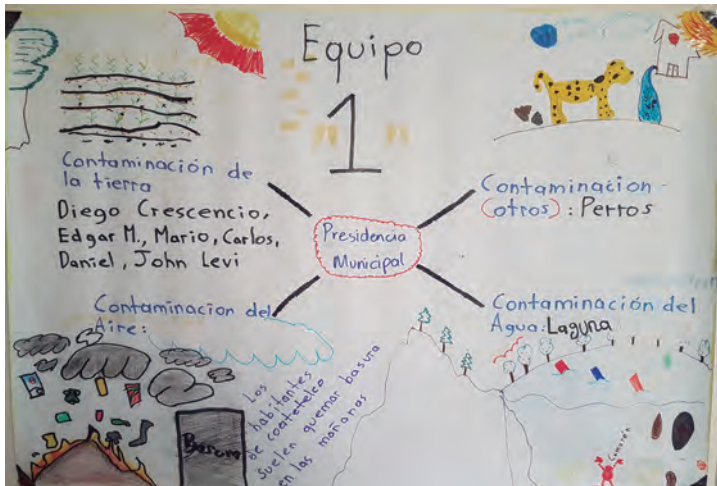 Equipo
1
Contaminación de
la tierra
Diego Crescencio,
Edgar M., Mario, Carlos,
Daniel, John Levi
Contaminacion
(otros): Perros
Presidencia
Municipal
Contaminacion del
Aire:
Contaminación del
Agua: Laguna
Los
habitantes
de coatetelco
suelen quemar basura
en las mañanas
Basura
Camarón